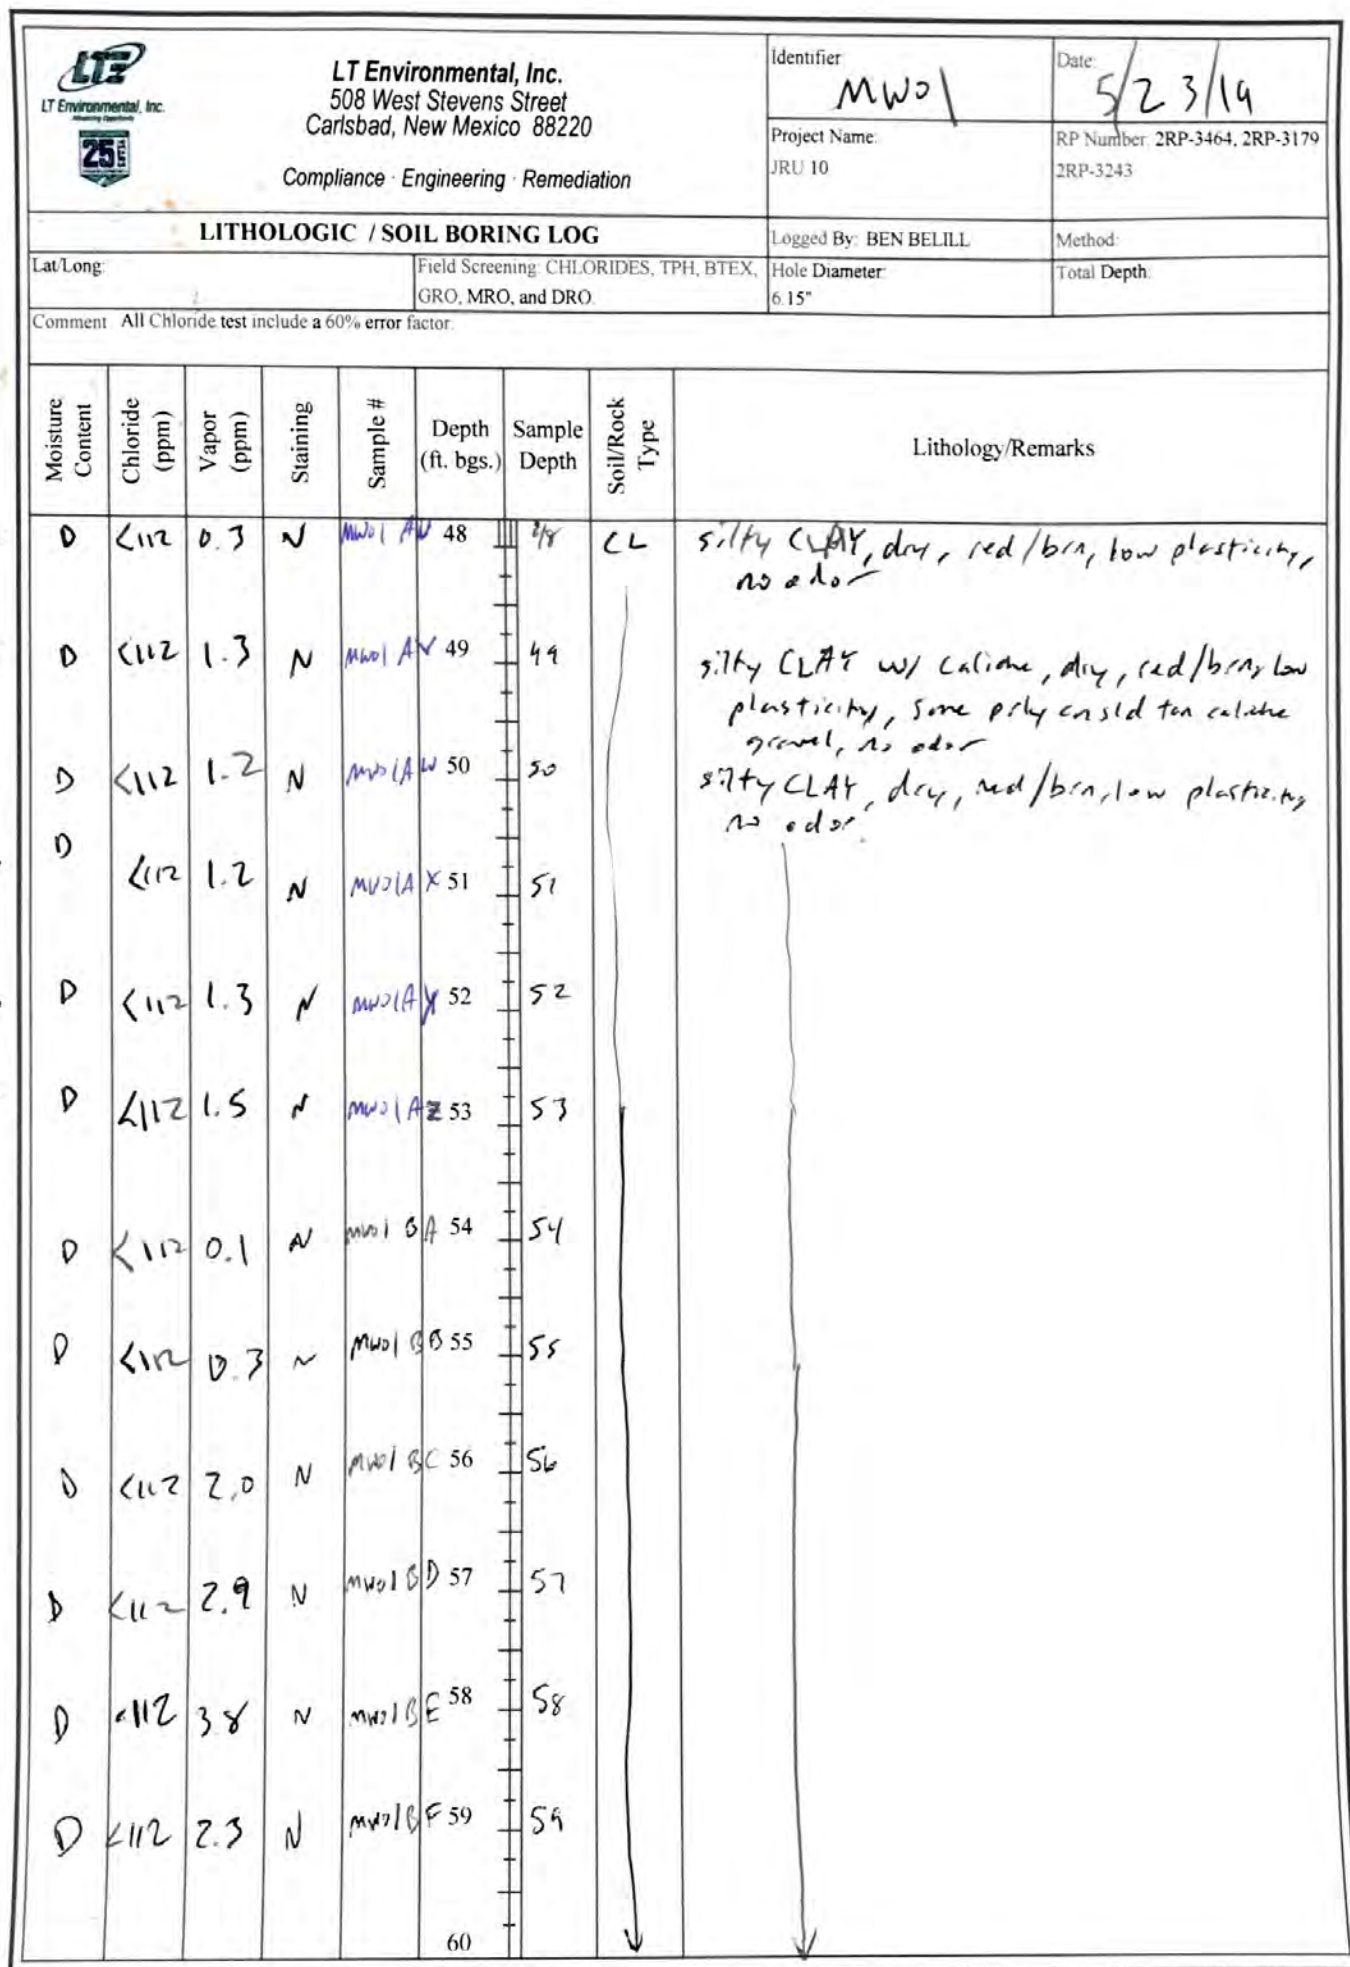 LTE
LT Environmental, Inc.
Advancing Opportunity
25 YEARS
LT Environmental, Inc.
508 West Stevens Street
Carlsbad, New Mexico 88220
Compliance · Engineering · Remediation
Identifier: MW01
Date: 5/23/19
Project Name:
JRU 10
RP Number: 2RP-3464, 2RP-3179
2RP-3243
LITHOLOGIC / SOIL BORING LOG
Logged By: BEN BELILL
Method:
Lat/Long:
Field Screening: CHLORIDES, TPH, BTEX,
GRO, MRO, and DRO.
Hole Diameter:
6.15"
Total Depth:
Comment: All Chloride test include a 60% error factor.
Moisture Content
Chloride (ppm)
Vapor (ppm)
Staining
Sample #
Depth (ft. bgs.)
Sample Depth
Soil/Rock Type
Lithology/Remarks
D <112 0.3 N MW01 AU 48 48 CL silty CLAY, dry, red/brn, low plasticity,
no odor
D <112 1.3 N MW01 AV 49 49 silty CLAY w/ caliche, dry, red/brn, low
plasticity, some prly cnsld tan caliche
gravel, no odor
D <112 1.2 N MW01AW 50 50 silty CLAY, dry, red/brn, low plasticity
no odor.
D <112 1.2 N MW01AX 51 51
D <112 1.3 N MW01AY 52 52
D <112 1.5 N MW01AZ 53 53
D <112 0.1 N MW01 BA 54 54
D <112 0.3 N MW01 BB 55 55
D <112 2.0 N MW01 BC 56 56
D <112 2.9 N MW01 BD 57 57
D <112 3.8 N MW01BE 58 58
D <112 2.3 N MW01BF 59 59
60